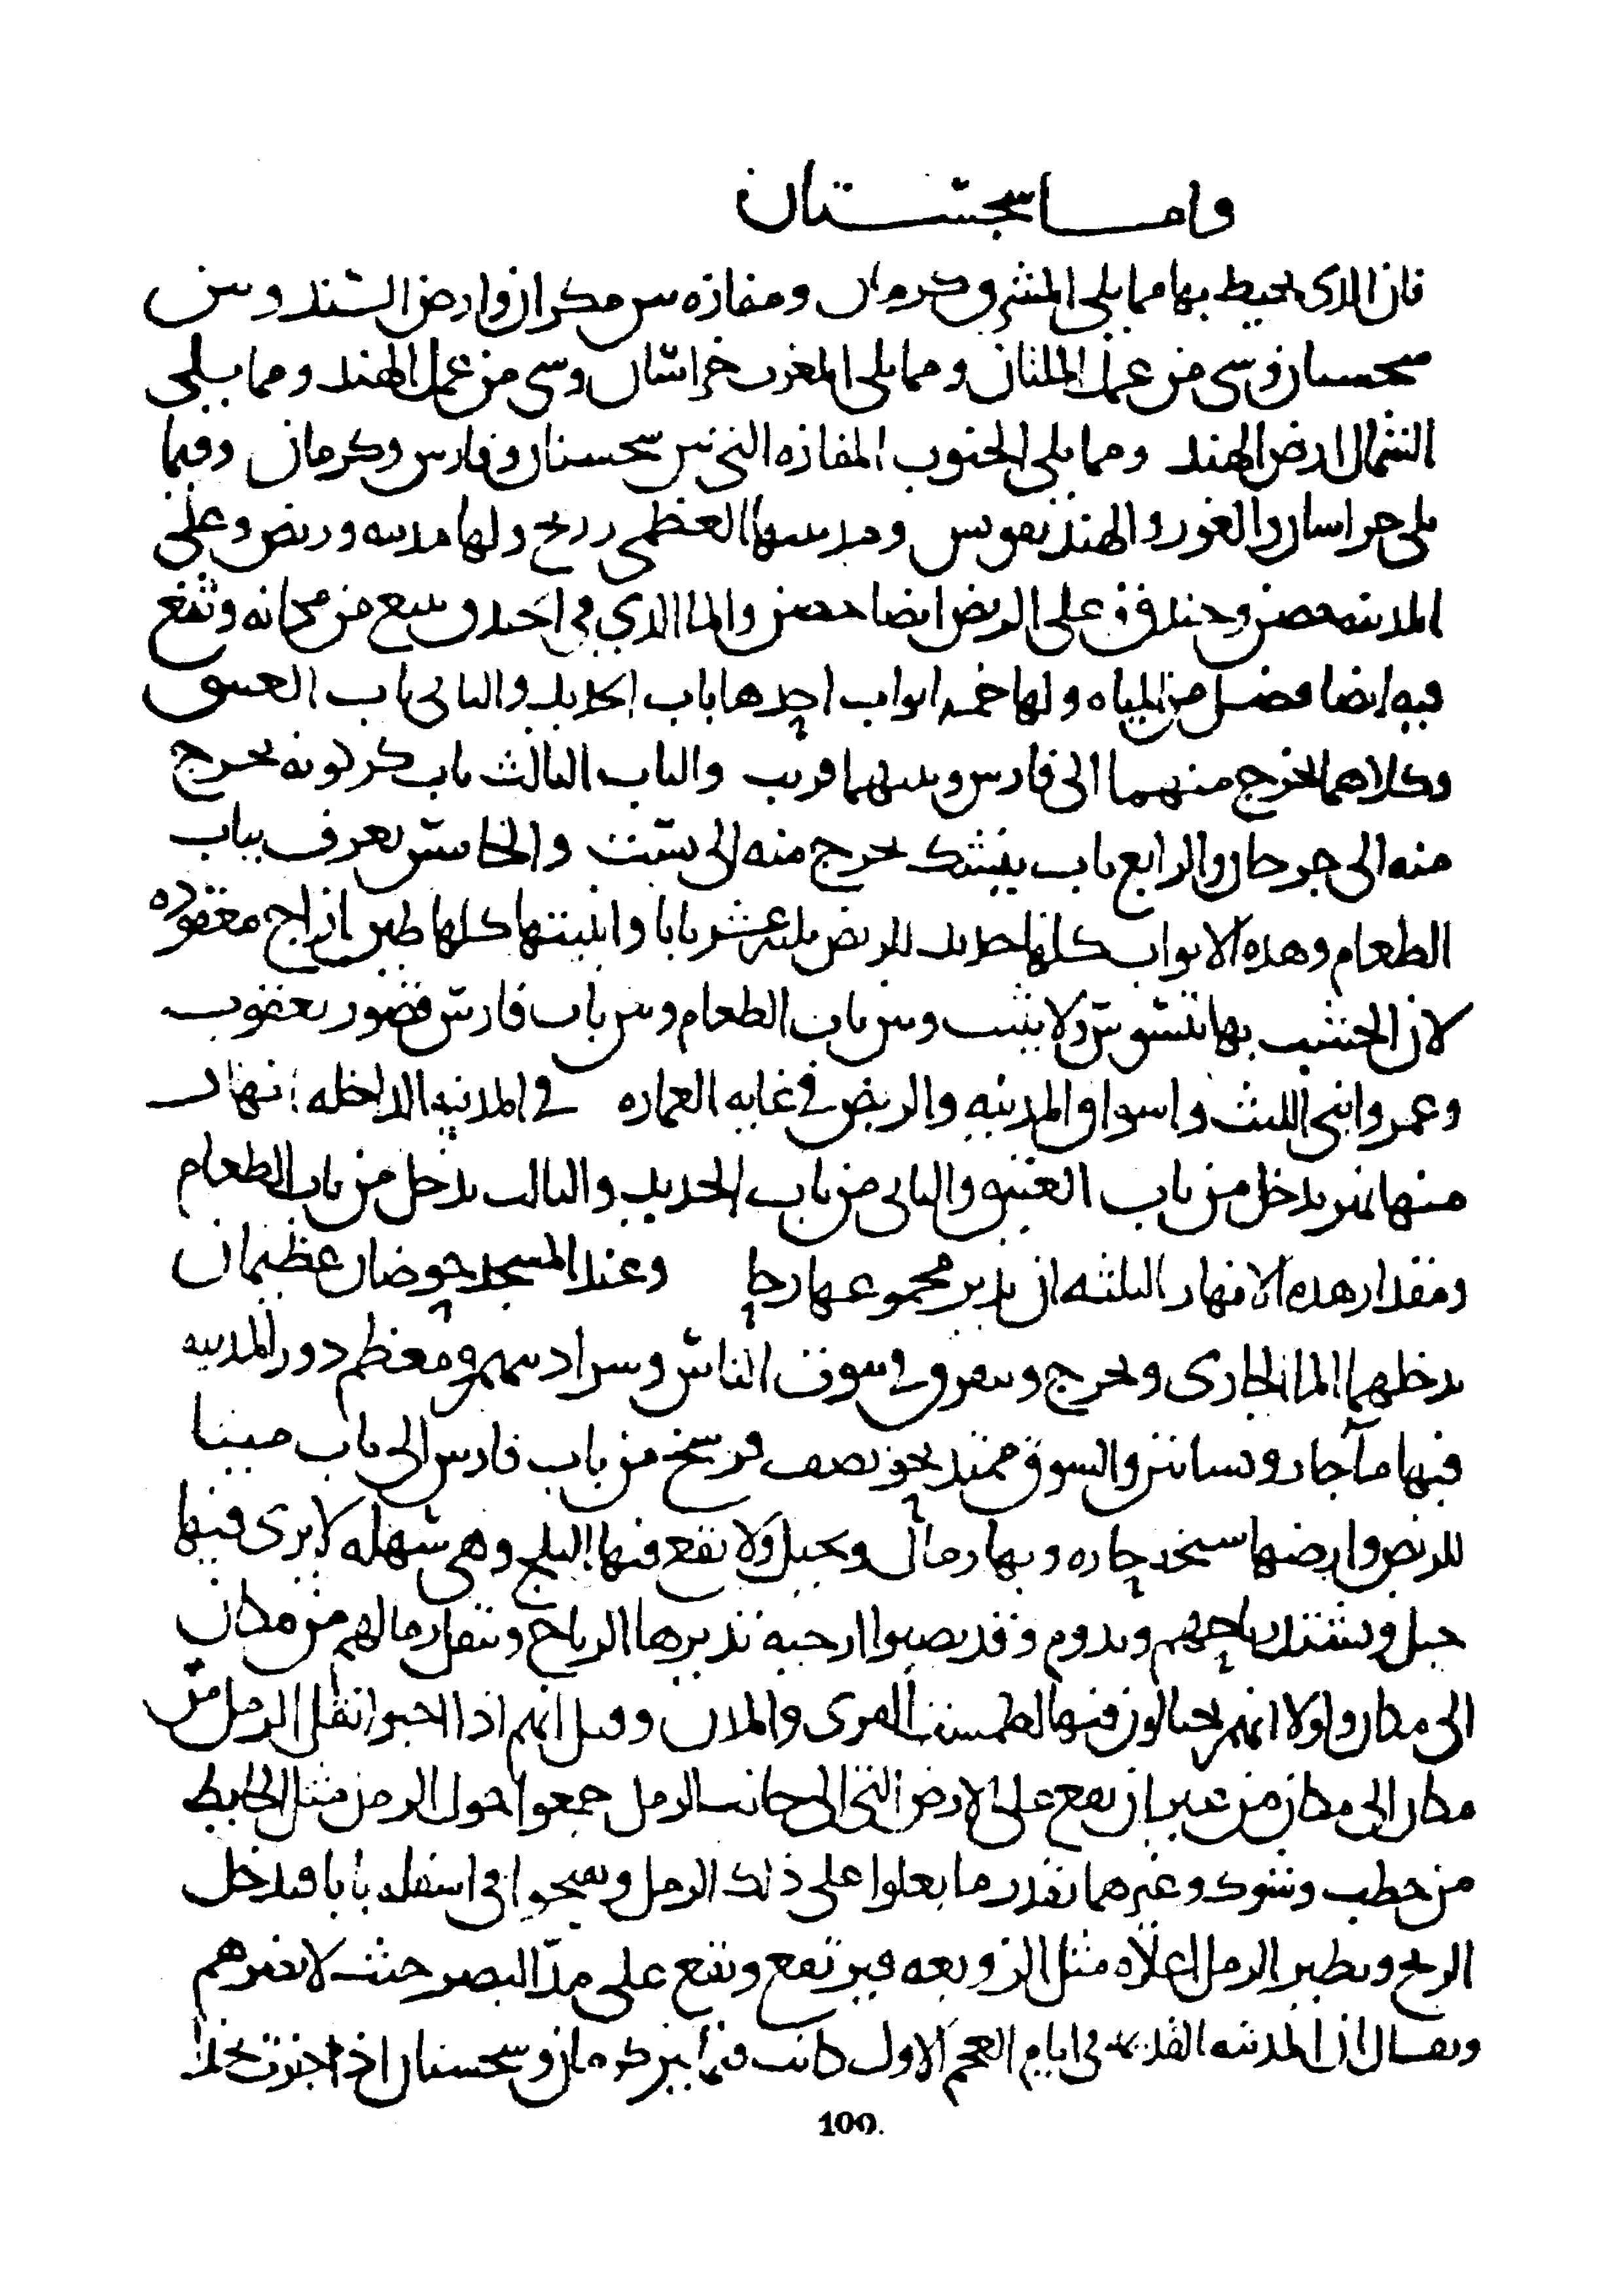 واما سجستان
فان الدى يحيط بها مما يلى المشرق كرمان ومفازه بين مكران وارض السند وبين
سجستان وشى من عمل الملتان ومما يلى المغرب خراسان وشى من عمل الهند ومما يلي
الشمال ارض الهند ومما يلى الجنوب المفازه التى بين سجستان وفارس وكرمان وفيما
يلى خراسان والغور والهند تقويس ومدينتها العظمى زرنج ولها مدينه وربض وعلى
المدينه حصن وخندق وعلى الربض ايضا حصن والما الذي في الخندق ينبع من مكانه وتقع
فيه ايضا فضل من المياه ولها خمسه ابواب احدها باب الحديد والثانى باب العتيق
وكلاهما يخرج منهما الى فارس وبينهما قريب والباب الثالث باب كركويه يخرج
منه الى جرجان والرابع باب ينشك يخرج منه الى بست والخامس يعرف بباب
الطعام وهذه الابواب كلها حديد للربض ثلثه عشر بابا وابنيتها كلها طين ازاج معقوده
لان الخشب بها يتسوس ولا يثبت وبين باب الطعام وبين باب فارس قصور يعقوب
وعمرو ابنى الليث واسواق المدينه والربض في غايه العماره في المدينه الداخله انهار
منها نهر يدخل من باب العتيق والثانى من باب الحديد والثالث يدخل من باب الطعام
ومقدار هذه الانهار الثلثه ان يدير مجموعها رحا وعند المسجد حوضان عظيمان
يدخلهما الما الجارى ويخرج ويتفرق في سوق الناس وسرادسهم ومعظم دور المدينه
فيها مآ جار وبساتين والسوق ممتد نحو نصف فرسخ من باب فارس الى باب مينا
للربض وارضها سبخه حاره وبها رمال ونخيل ولا يقع فيها الثلج وهى سهله لا يرى فيها
جبل وتشتد رياحهم وتدوم وقد نصبوا ارحيه تديرها الرياح وتنقل رمالهم من مكان
الى مكان ولولا انهم يحتالون فيها لطمست القرى والمدن وقيل انهم اذا احبوا نقل الرمل من
مكان الى مكان من غير ان يقع على الارض التى الى جانب الرمل جمعوا حول الرمل مثل الحايط
من حطب وشوك وغيرهما بقدر ما يعلوا على ذلك الرمل ويفتحوا في اسفله بابا فتدخل
الريح ويطير الرمل اعلاه مثل الزوبعه فيرتفع ويقع على مدّ البصر حيث لا يضرهم
ويقال ان المدينه القديمه في ايام العجم الاول كانت فيما بين كرمان وسجستان اذا جزت
100.